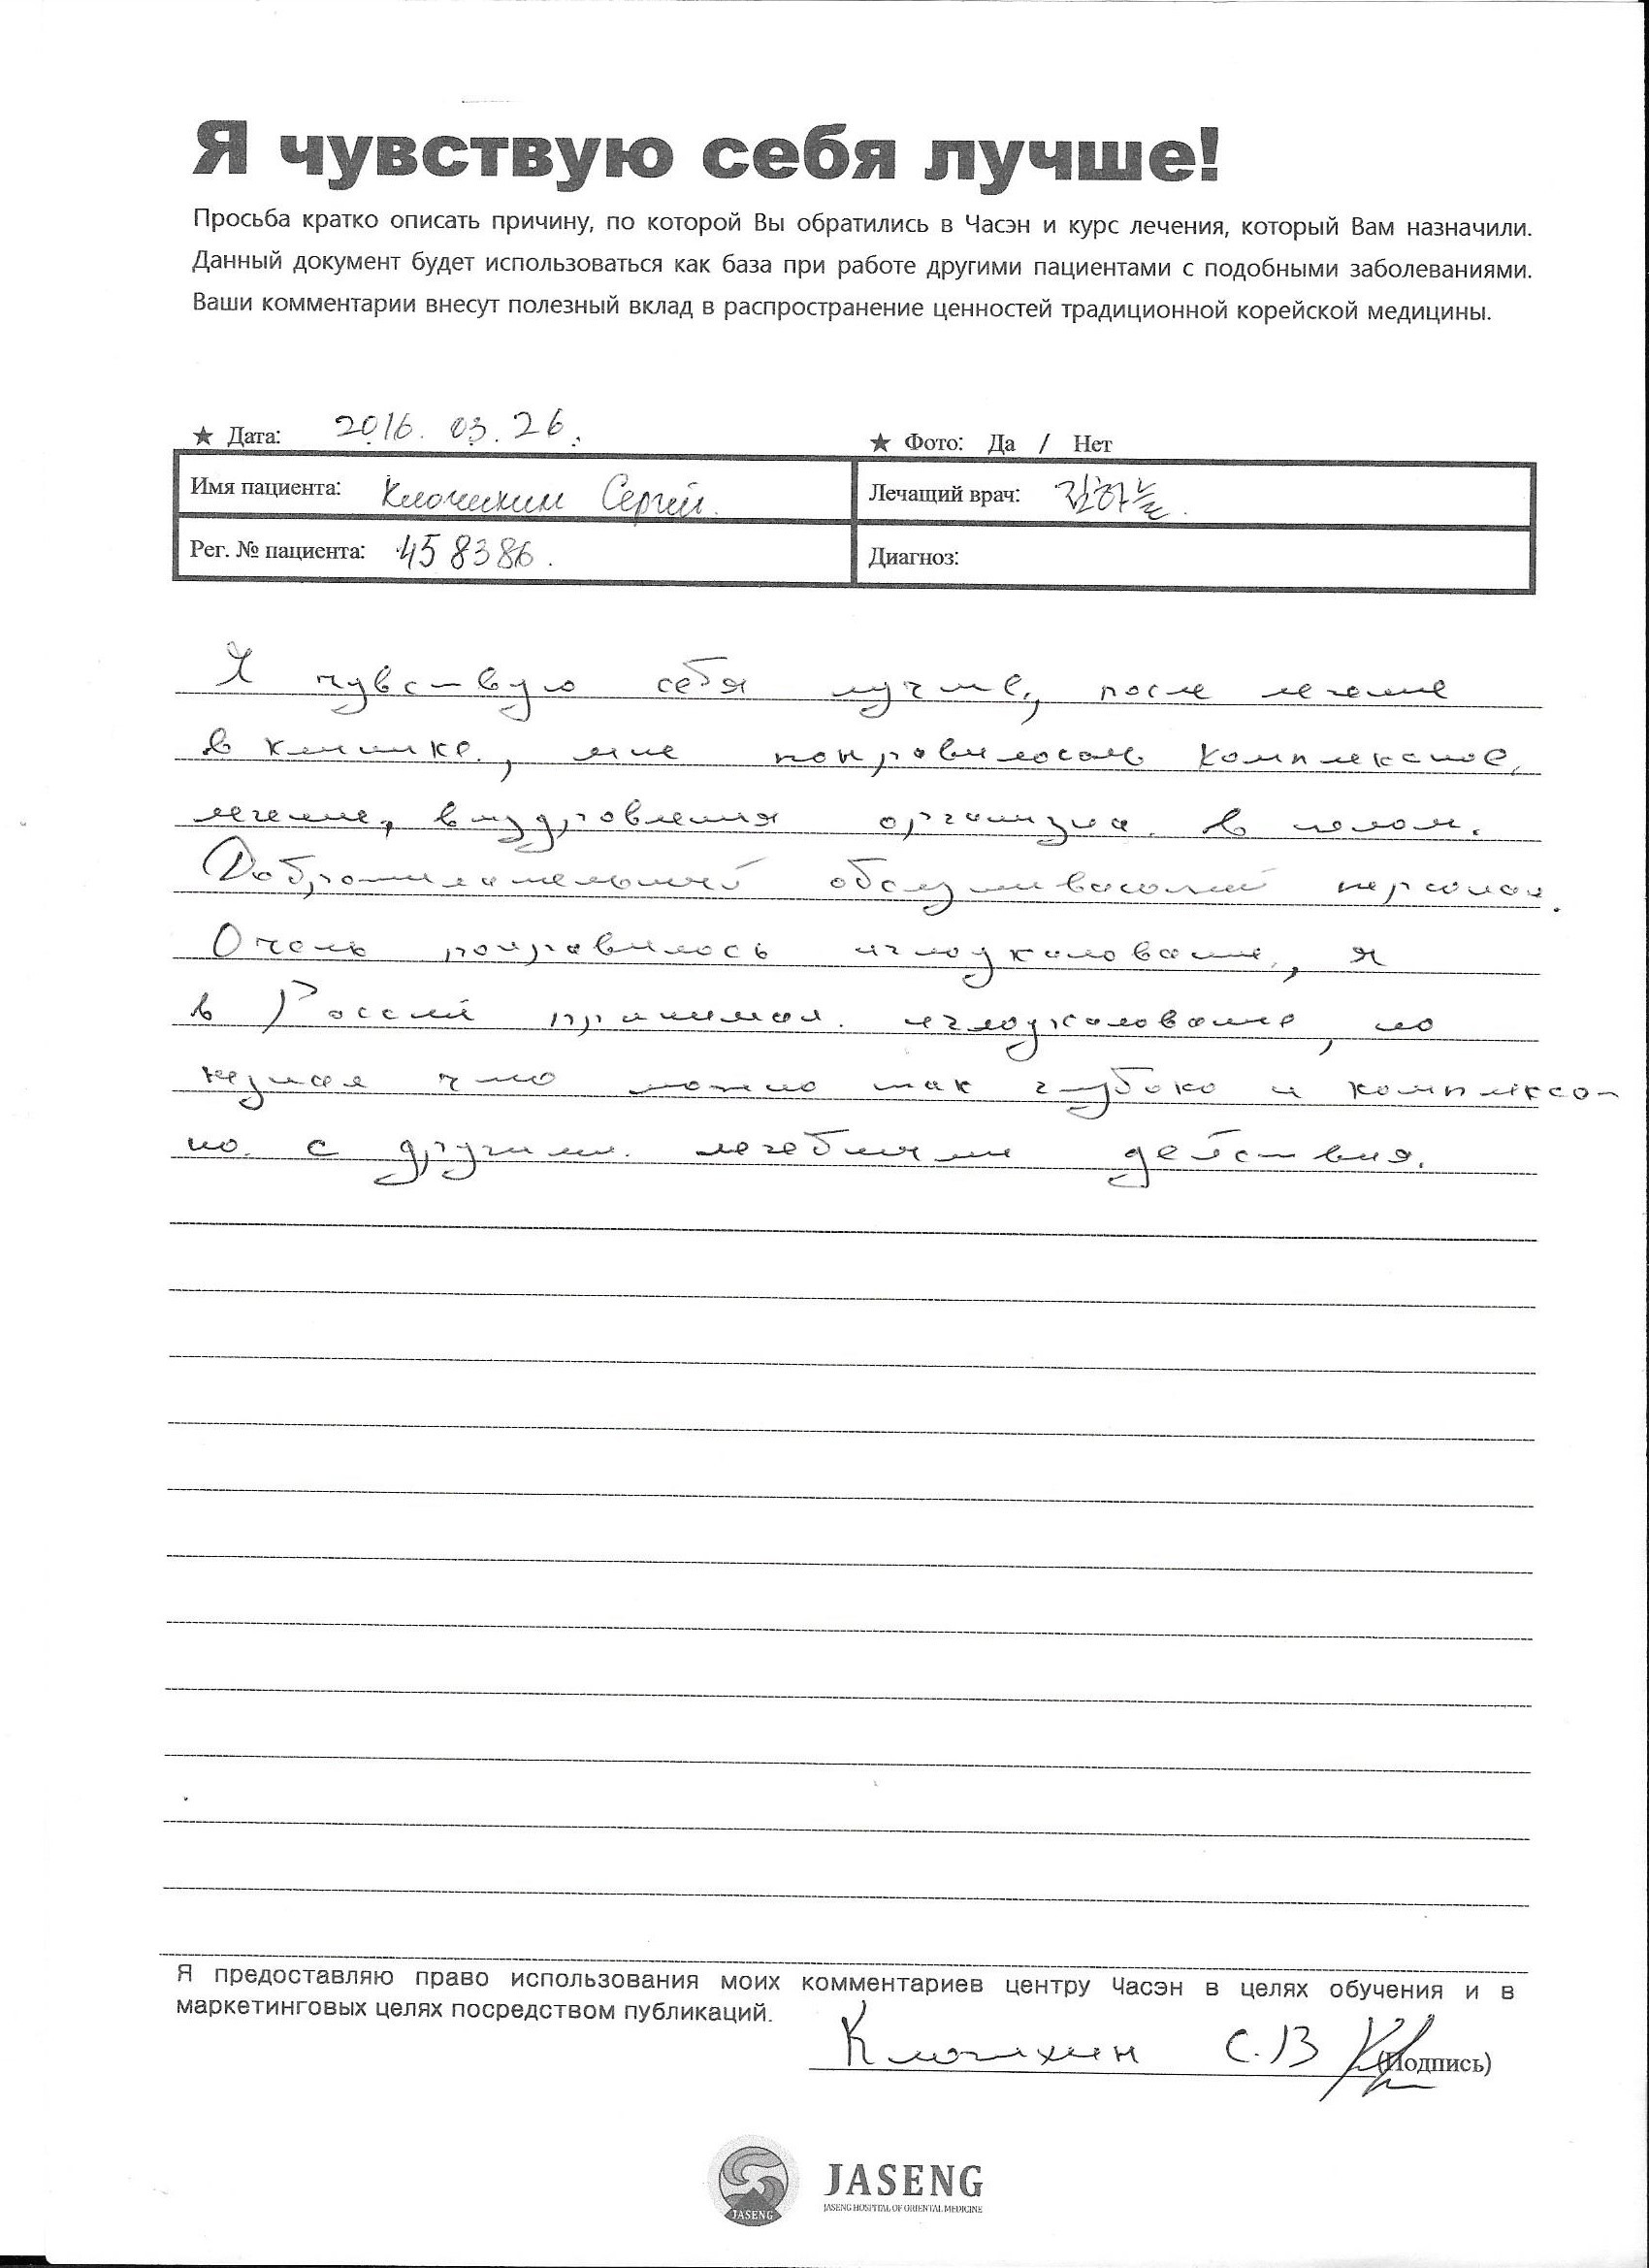 Я чувствую себя лучше!
Просьба кратко описать причину, по которой Вы обратились в Часэн и курс лечения, который Вам назначили.
Данный документ будет использоваться как база при работе другими пациентами с подобными заболеваниями.
Ваши комментарии внесут полезный вклад в распространение ценностей традиционной корейской медицины.
★ Дата: 2016. 03. 26.
★ Фото: Да / Нет
Имя пациента: Сергей.
Лечащий врач: 김하늘.
Рег. № пациента: 458386.
Диагноз:
Я чувствую себя лучше, после лечение
в клинике, мне комплексное
лечение, организма в целом.
Доброжелательный персонал.
Очень понравилось иглоукалование, я
в Россий принимал иглоукалование, но
что можно так глубоко и комплексон-
но с другими лечебными действия.
Я предоставляю право использования моих комментариев центру Часэн в целях обучения и в
маркетинговых целях посредством публикаций.
Клочихин С.В (Подпись)
JASENG
JASENG
JASENG HOSPITAL OF ORIENTAL MEDICINE